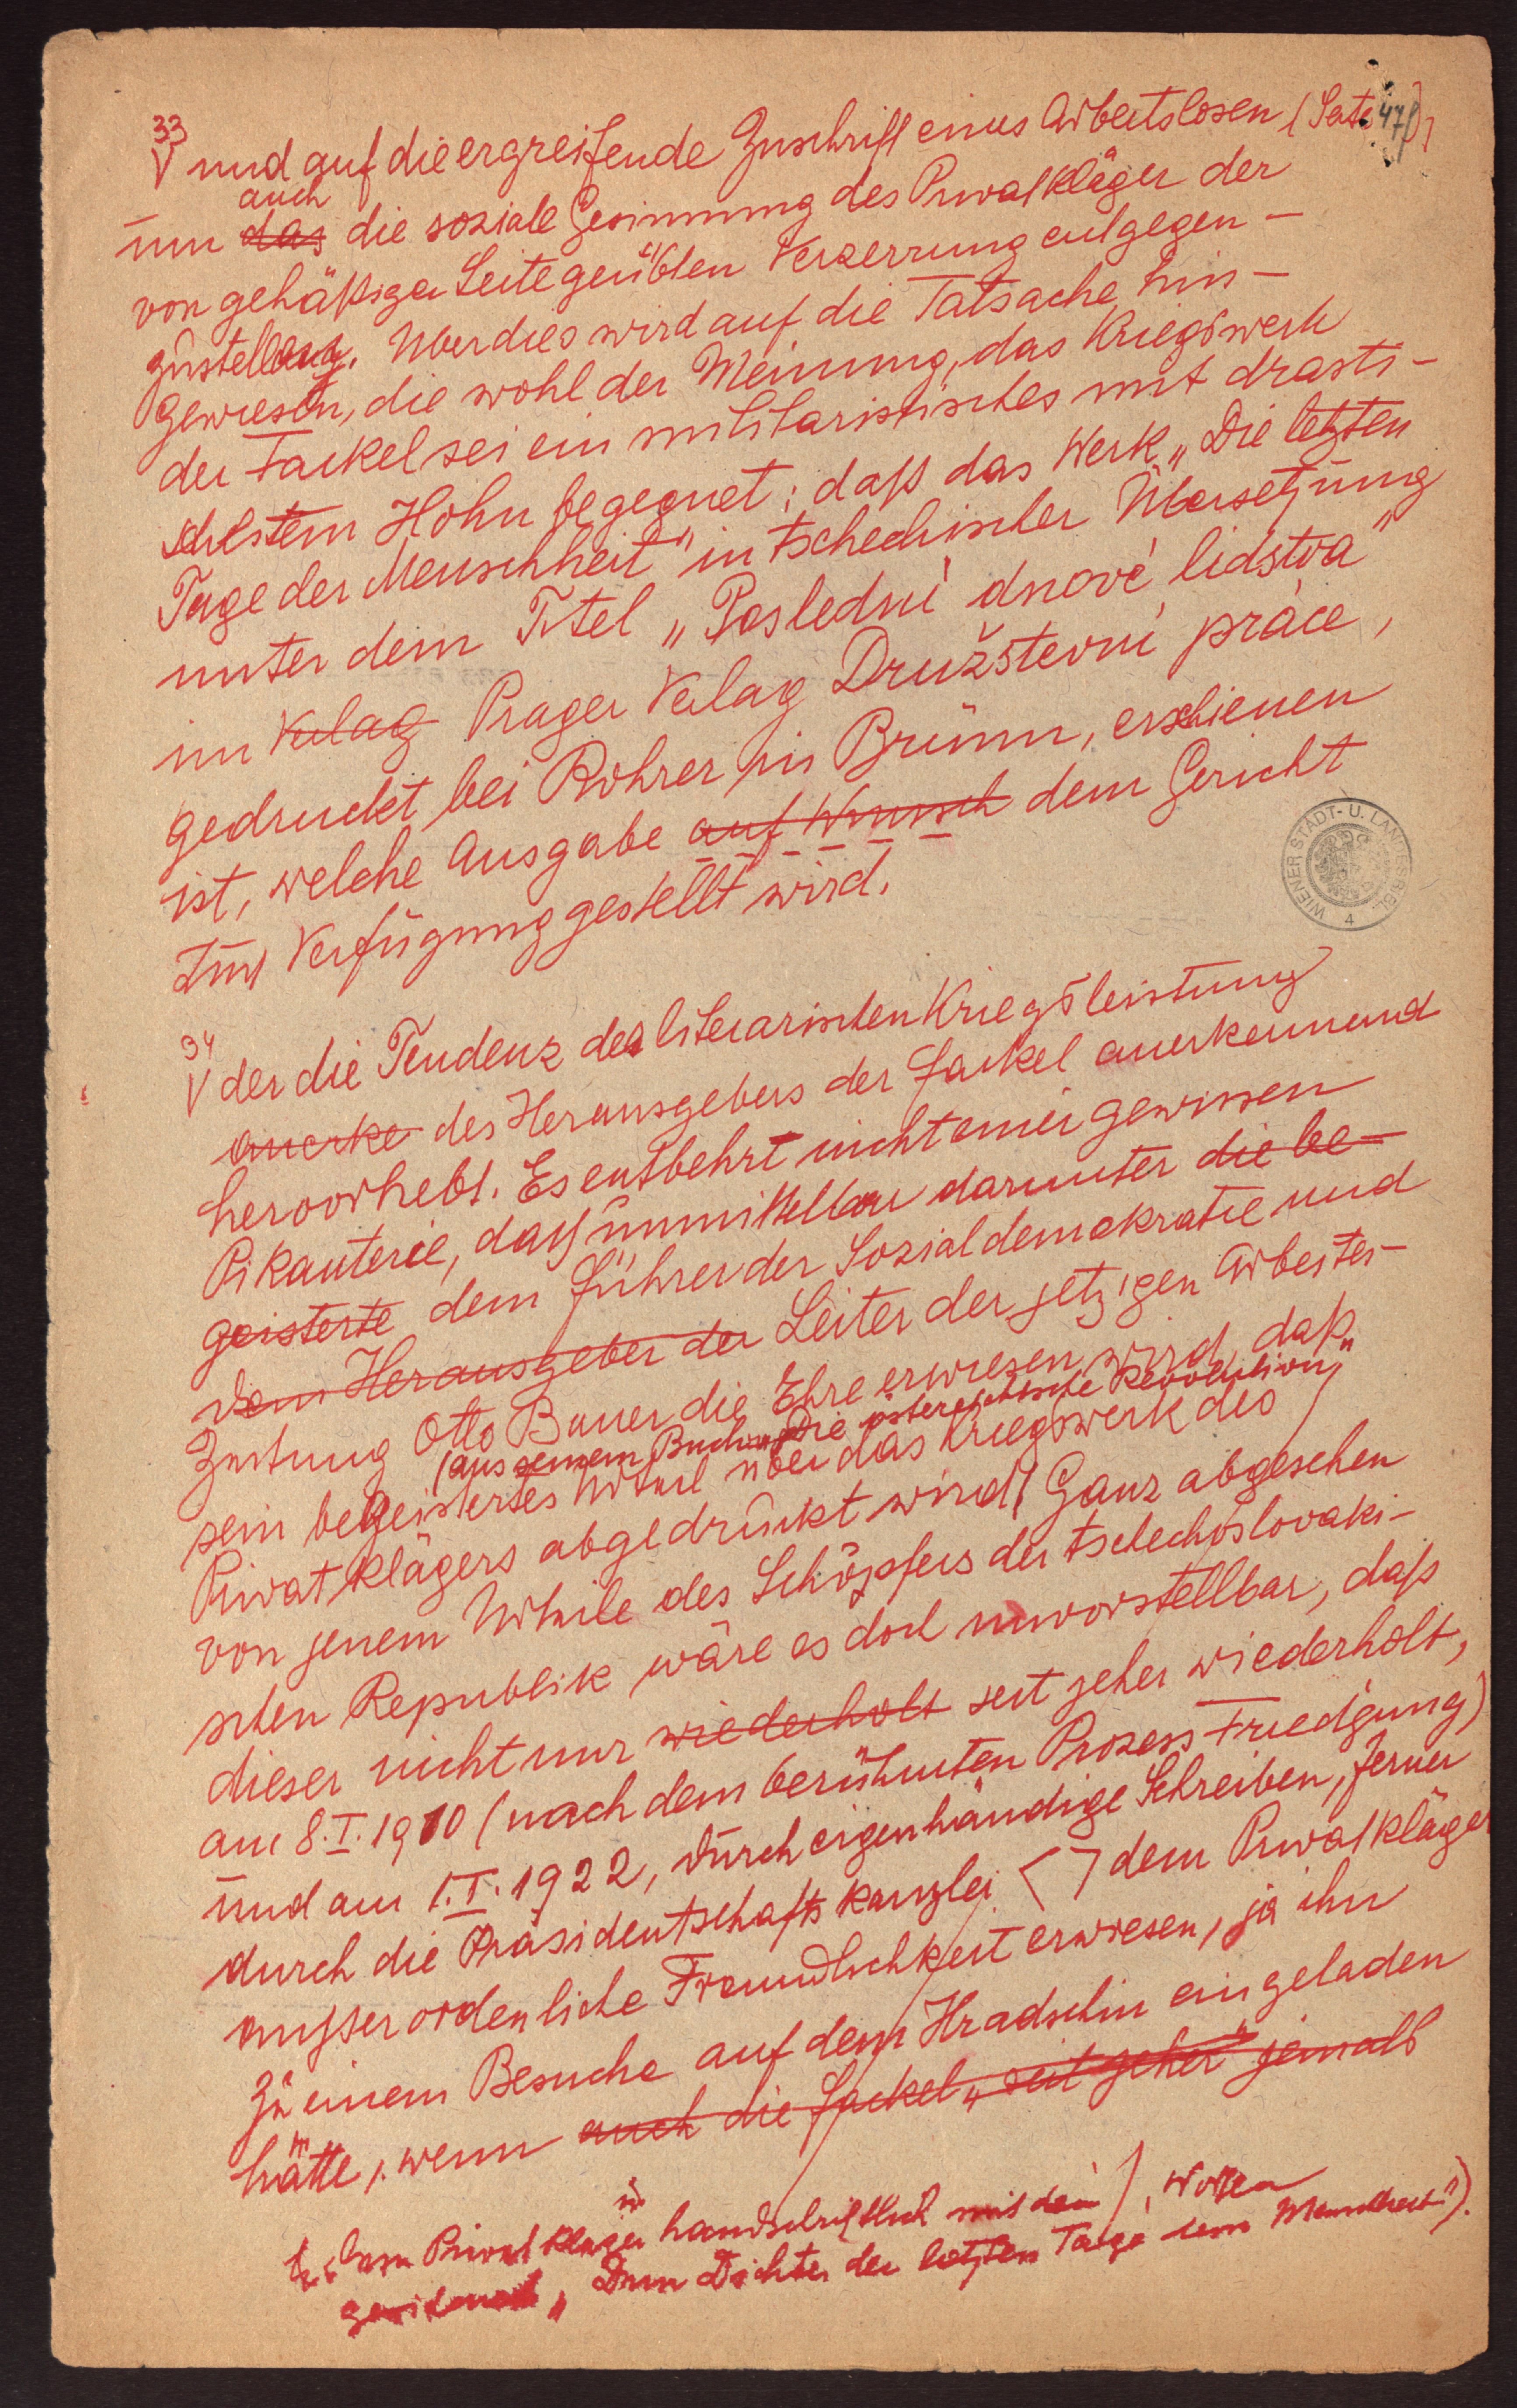 33
V und auf die ergreifende Zuschrift eines Arbeitslosen (Seite 47f),
auch
um das die soziale Gesinnung des Privatkläger der
von gehäßiger Seite geübten Verzerrung entgegen-
zustellen. Überdies wird auf die Tatsache hin-
gewiesen, die wohl der Meinung, das Kriegswerk
der Fackel sei ein militaristisches mit drasti-
schestem Hohn begegnet: daß das Werk „Die letzten
Tage der Menschheit" in tschechischer Übersetzung
unter dem Titel „Poslední dnové lidstva"
im Verlag Prager Verlag Družstevní práce,
gedruckt bei Rohrer in Brünn, erschienen
ist, welche Ausgabe auf Wunsch dem Gericht
zur Verfügung gestellt wird.
34
V der die Tendenz der literarischen Kriegsleistung
anerke des Herausgebers der Fackel anerkennend
hervorhebt. Es entbehrt nicht einer gewissen
Pikanterie, daß unmittelbar darunter die be-
geisterte dem Führer der Sozialdemokratie und
dem Herausgeber der Leiter der jetzigen Arbeiter-
Zeitung Otto Bauer die Ehre erwiesen wird, daß
(aus seinem Buch „Die österreichische Revolution"
sein begeistertes Urteil über das Kriegswerk des
Privatklägers abgedruckt wird! Ganz abgesehen
von jenem Urteile des Schöpfers der tschechoslovaki-
schen Republik wäre es doch unvorstellbar, daß
dieser nicht nur wiederholt seit jeher wiederholt,
am 8.I.1910 (nach dem berühmten Prozess Friedjung)
und am 1.I.1922, durch eigenhändige Schreiben, ferner
durch die Präsidentschaftskanzlei dem Privatkläger
ausserordenliche Freundlichkeit erwiesen, ja ihn
zu einem Besuche auf dem Hradschin eingeladen
hätte, wenn auch die Fackel „seit jeher" jemals
dem Privatkläger handschriftlich mit den Worten
gewidmet „Dem Dichter der letzten Tage der Menschheit").
WIENER STADT- U. LANDESBIBL.
4